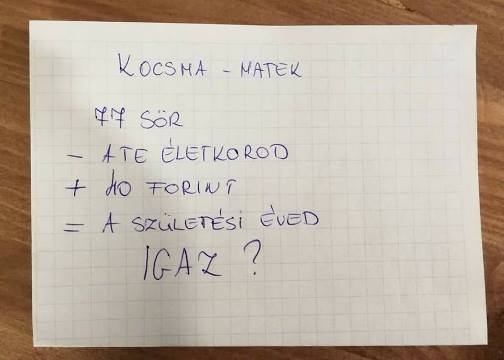 KOCSMA - MATEK
77 SÖR
- A TE ÉLETKOROD
+ 40 FORINT
= A SZÜLETÉSI ÉVED
IGAZ ?